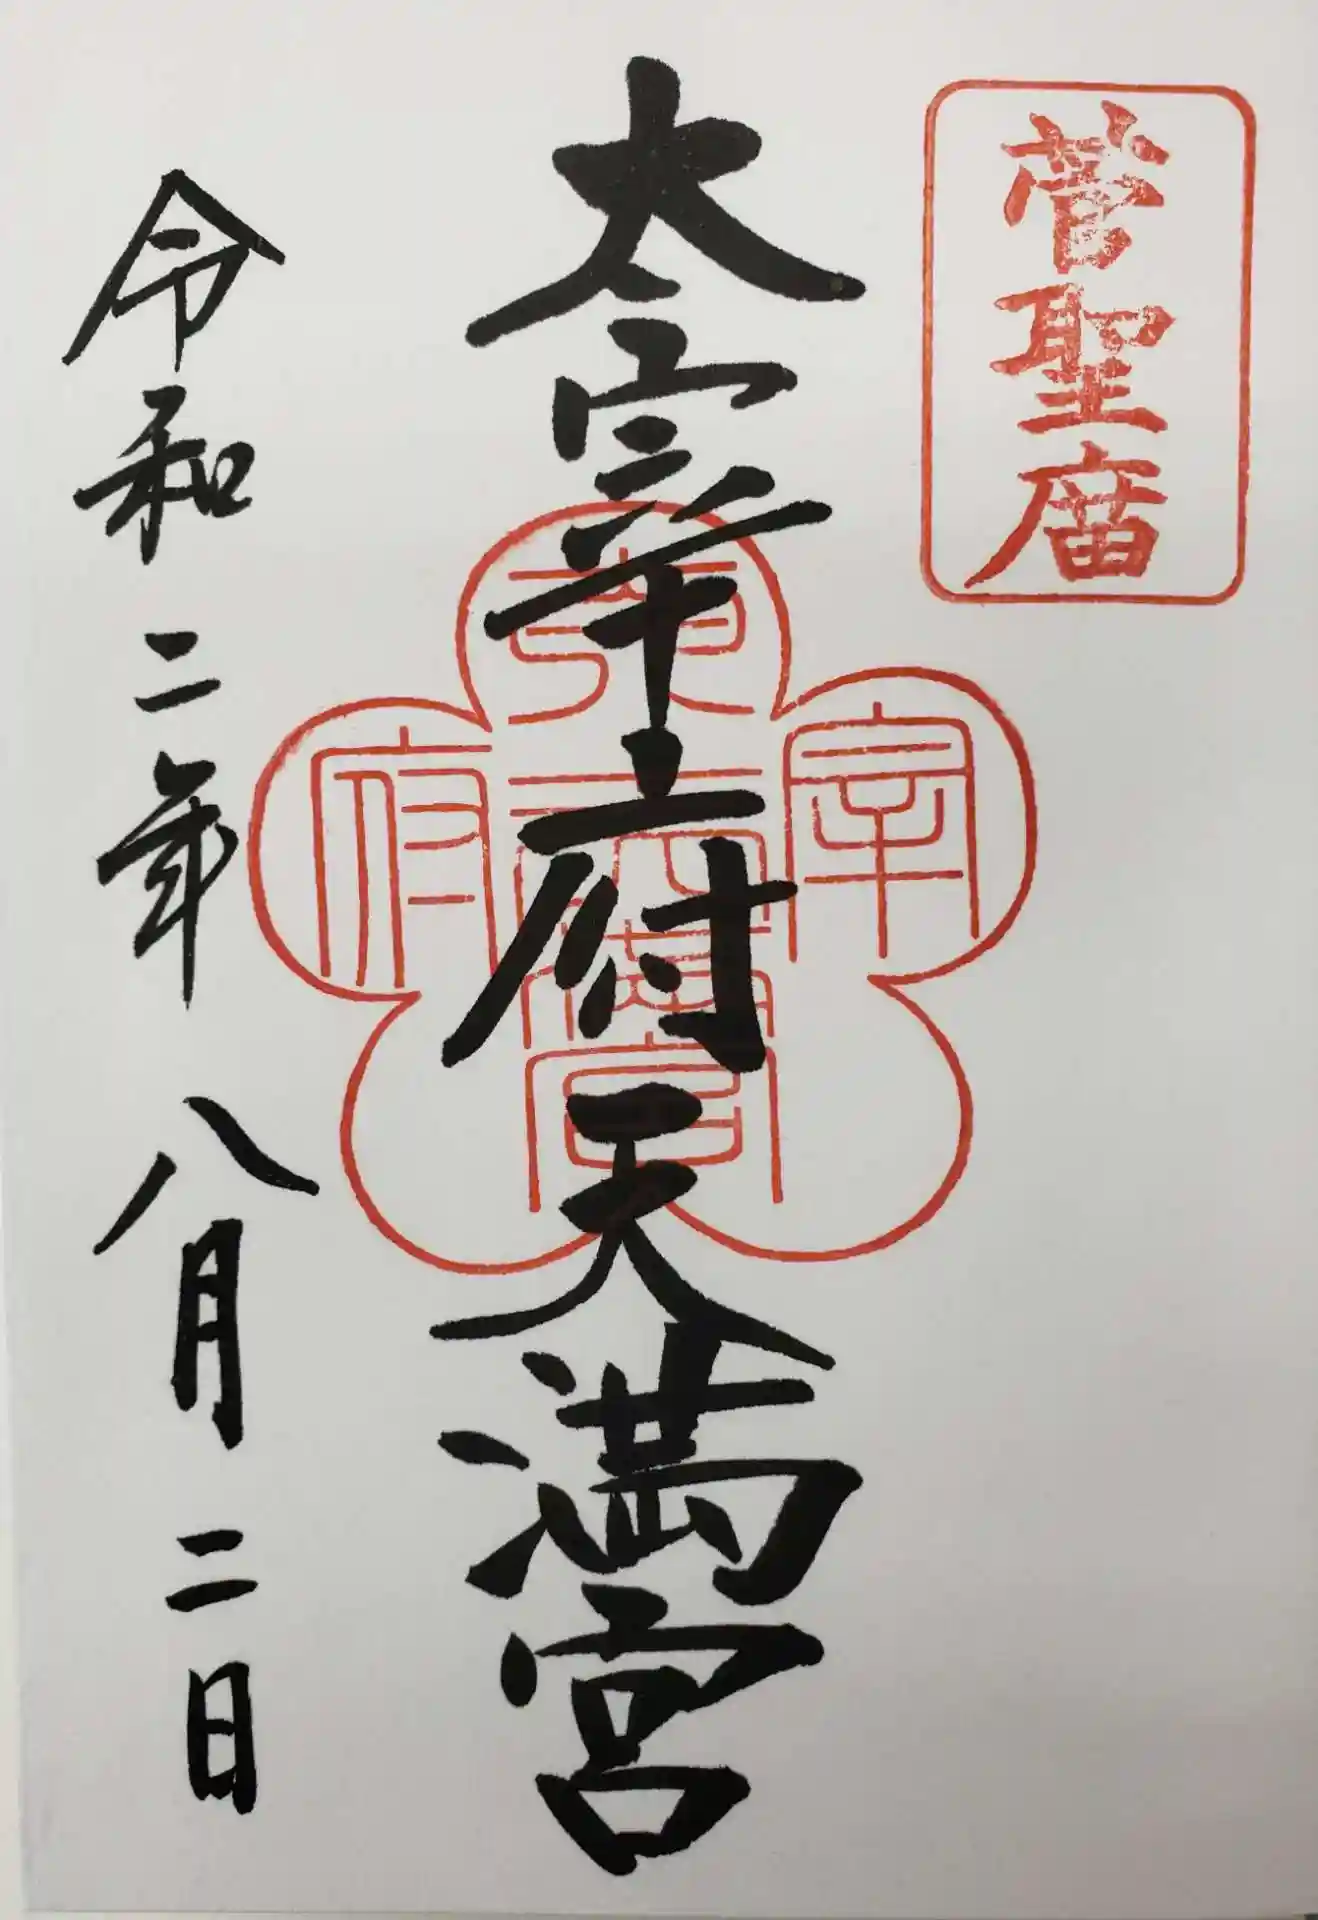 菅聖庿
太宰府天満宮
宰
府
宮
令和二年八月二日